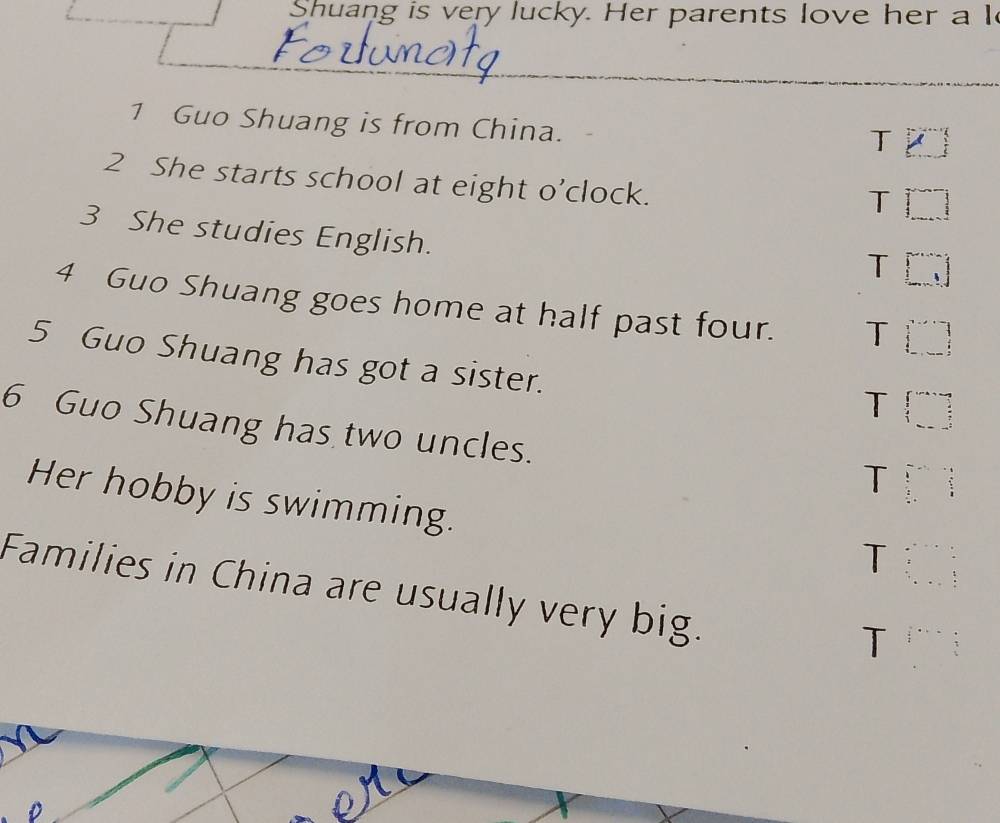 Shuang is very lucky. Her parents love her a
Fortunata
1 Guo Shuang is from China. T
2 She starts school at eight o'clock. T
3 She studies English. T
4 Guo Shuang goes home at half past four. T
5 Guo Shuang has got a sister. T
6 Guo Shuang has two uncles. T
Her hobby is swimming. T
Families in China are usually very big. T